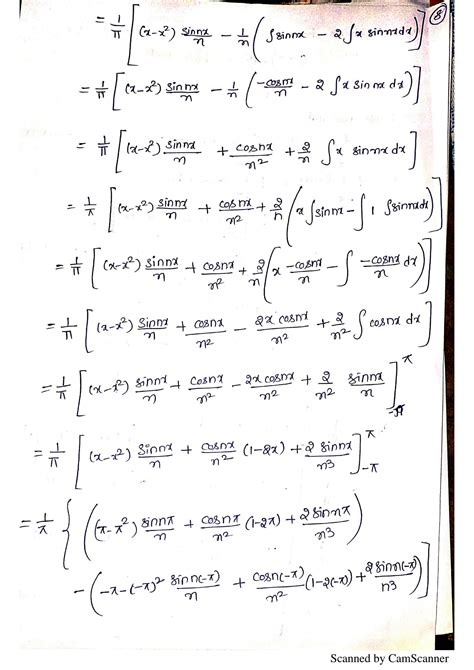 8
= 1/π [ (x-x²) sinnx/n - 1/n ( ∫sinnx - 2∫x sinnxdx ) ]
= 1/π [ (x-x²) sinnx/n - 1/n ( -cosnx/n - 2 ∫ x sin nx dx ) ]
= 1/π [ (x-x²) sinnx/n + cosnx/n² + 2/n ∫ x sinnx dx ]
= 1/π [ (x-x²) sinnx/n + cosnx/n² + 2/n ( x ∫sinnx - ∫ 1 ∫sinnxdx ) ]
= 1/π [ (x-x²) sinnx/n + cosnx/n² + 2/n ( x -cosnx/n - ∫ -cosnx/n dx ) ]
= 1/π [ (x-x²) sinnx/n + cosnx/n² - 2x cosnx/n² + 2/n² ∫ cosnx dx ]
= 1/π [ (x-x²) sinnx/n + cosnx/n² - 2x cosnx/n² + 2/n² sinnx/n ]_-π^π
= 1/π [ (x-x²) sinnx/n + cosnx/n² (1-2x) + 2 sinnx/n³ ]_-π^π
= 1/π { ( (π-π²) sinnπ/n + cosnπ/n² (1-2π) + 2 sinnπ/n³ )
- ( -π-(-π)² sinn(-π)/n + cosn(-π)/n² (1-2(-π)) + 2sinn(-π)/n³ ) ]
Scanned by CamScanner